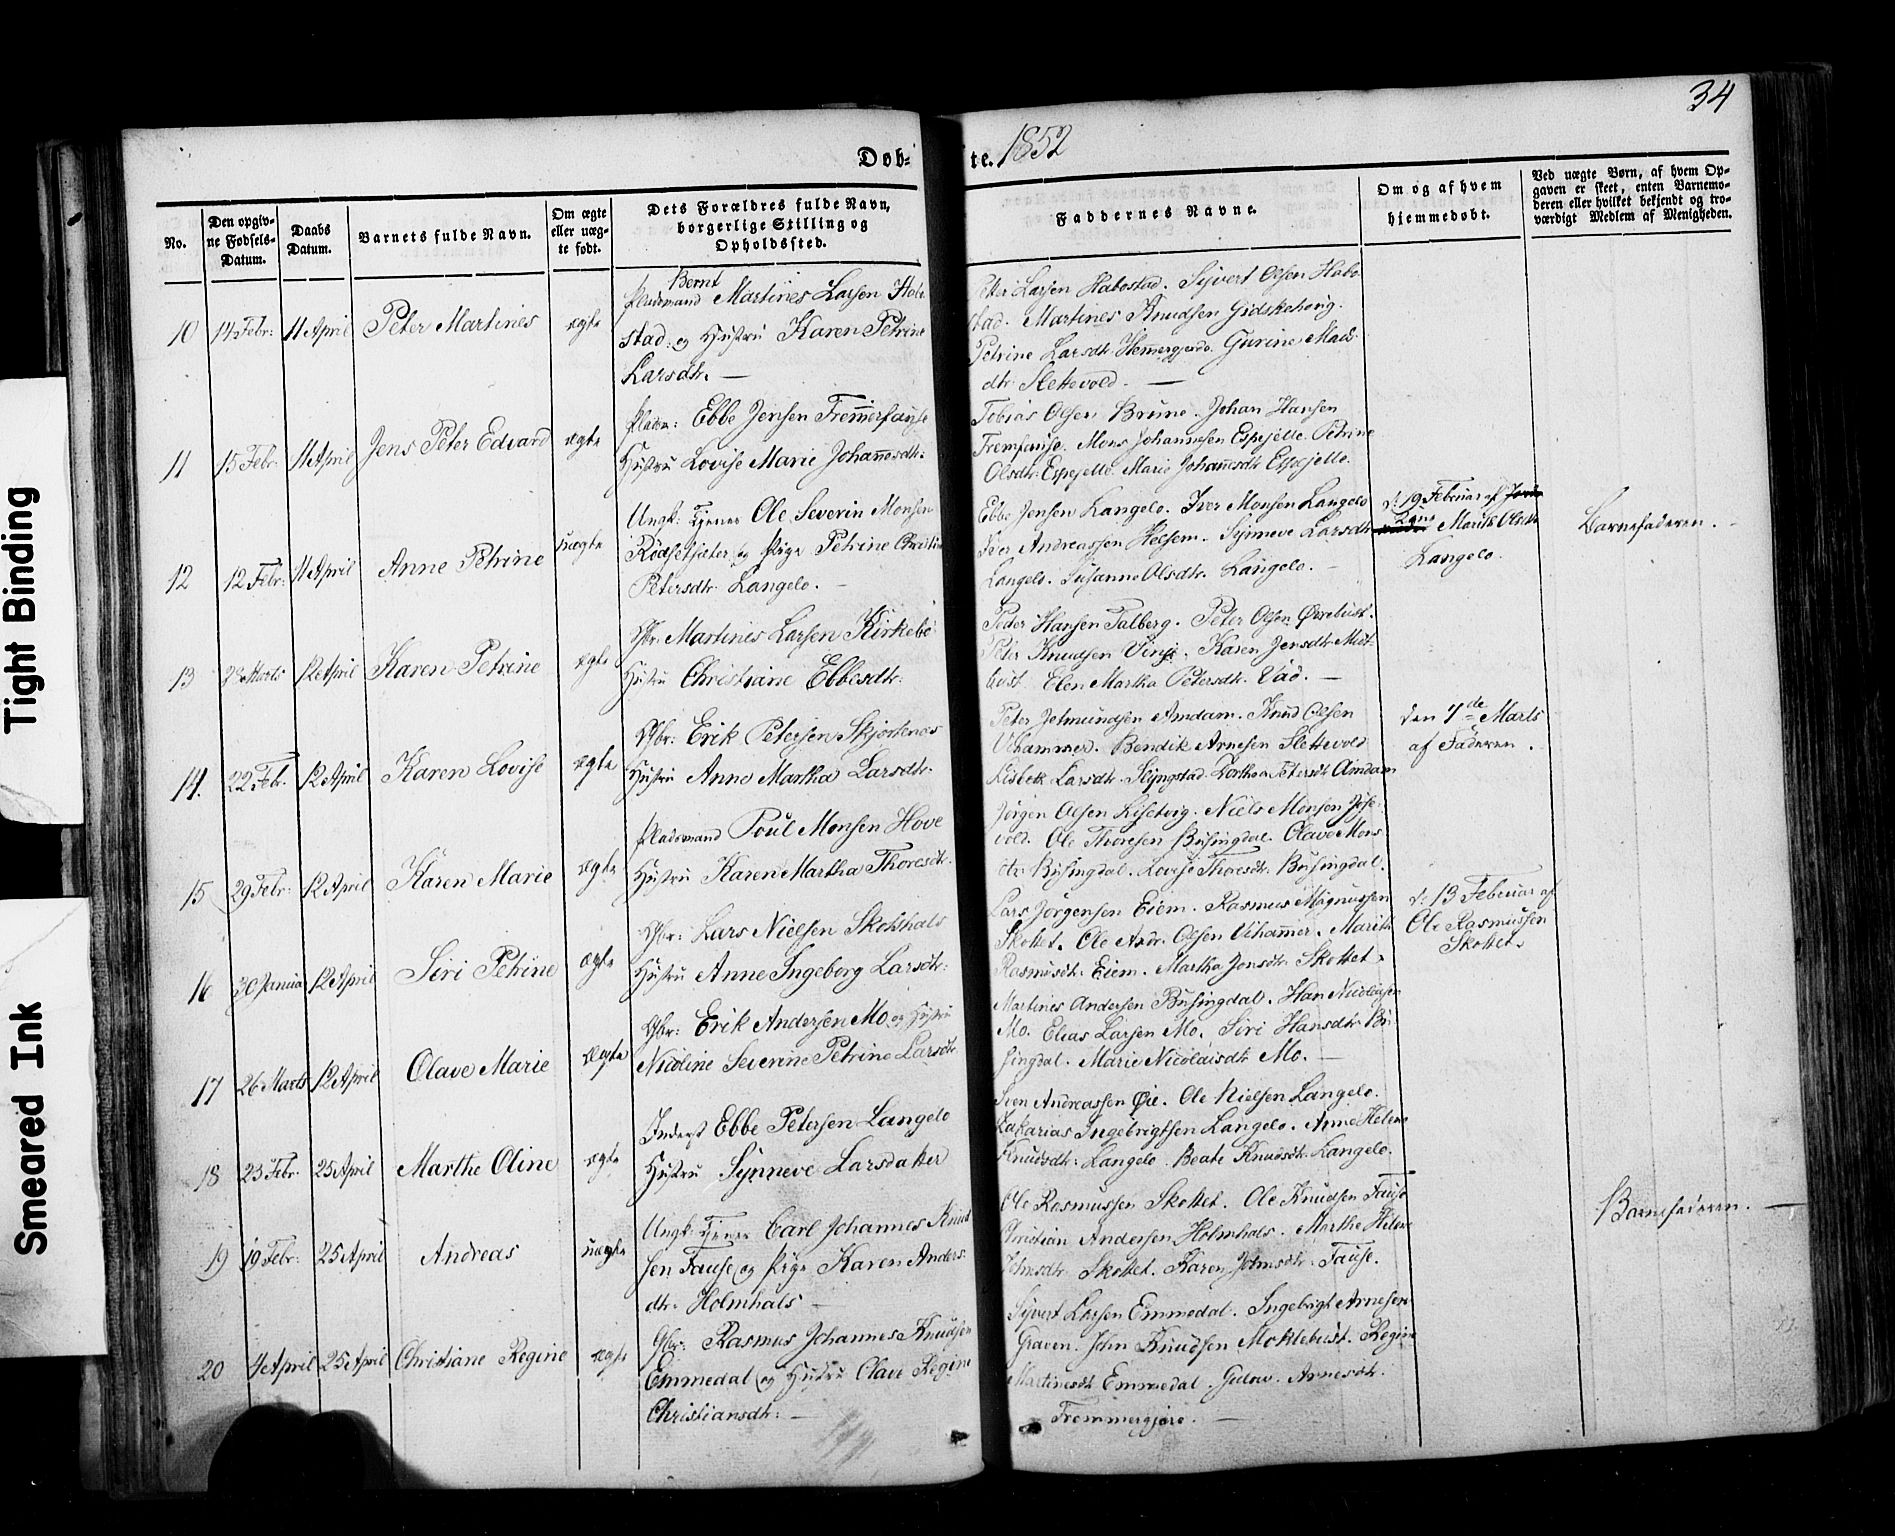 34
Døb-
te. 1852
No.
Den opgiv-
ne Fødsels-
Datum.
Daabs
Datum.
Barnets fulde Navn.
Om ægte
eller uæg-
te født.
Dets Forældres fulde Navn,
borgerlige Stilling og
Opholdssted.
Faddernes Navne.
Om og af hvem
hjemmedøbt.
Ved uægte Børn, af hvem Op-
gaven er skeet, enten Barnemo-
deren eller hvilket bekjendt og tro-
værdigt Medlem af Menigheden.
10 14 Febr: 11 April Peter Martines ægte
Bernt
Pladsmand Martines Larsen Hab-
stad: og Hustru Karen Petrine
Larsdtr. —
Peter Larsen Habostad. Syvert Olsen Habo
stad. Martines Knudsen Gidskehorig.
Petrine Larsdtr. Hemergjerde. Gurine Mads
dtr. Slettevold. —
11 15 Febr: 11 April Jens Peter Edvard ægte
Pladsm: Ebbe Jensen Fremerhause
Hustru Lovise Marie Johannesdtr:
Tobias Olsen Brune. Johan Hansen
Fremhause. Mons Johannesen Espejelle. Petrine
Olsdtr: Espejelle. Marie Johannesdtr Espejelle.
12 12 Febr: 11 April Anne Petrine uægte
Ungk: Tjener Ole Severin Monsen
Rødsetsæter og Pige Petrine Christi
Petersdtr Langelo. —
Ebbe Jensen Langelo. Iver Monsen Langelo
Iver Andreassen Helsem. Synneve Larsdtr
Langelo. Susanne Olsdtr. Langelo. —
d: 19 Februar af
Marith Olsdtr
Langelo.
Barnefaderen.
13 Marts 12 April Karen Petrine ægte
Gbr. Martines Larsen Kirkebø
Hustru Christiane Ebbesdtr:
Peder Hansen Talberg. Peter Olsen Øvrebust.
Peter Knudsen Vinje. Karen Jensdtr Midt-
bust. Elen Martha Petersdtr. Vad. —
14. 22 Feb. 12 April Karen Lovise ægte
Gbr: Erik Petersen Skjortenes
Hustru Anne Martha Larsdtr.
Peter Jetmundsen Amdam. Knud Olsen
Uhammer. Bendik Arnesen Slettevold
Lisbeth Larsdtr. Slyngstad. Dorthea Petersdtr Amdam
den 7de Marts
af Faderen.
15 29 Febr: 12 April Karen Marie ægte
Pladsmand Poul Monsen Hove
Hustru Karen Martha Thoresdtr.
Jørgen Olsen Liseborg. Niels Monsen
vold. Ole Thoresen Busingdal. Olave Mons
dtr. Busingdal. Lovise Thoresdtr. Busingdal.
16 30 Januar 12 April Siri Petrine ægte
Gbr: Lars Nielsen Skotshals
Hustru Anne Ingeborg Larsdtr:
Lars Jørgensen Eiem. Rasmus Magnussen
Skottet. Ole Andr. Olsen Uhammer. Marith
Rasmusdtr. Eiem. Martha Jonsdtr. Skottet.
d: 13 Februar af
Ole Rasmussen
Skottet.
17 26 Marts 12 April Olave Marie ægte
Gbr: Erik Andersen Mo og Hustru
Nicoline Severine Petrine Larsdtr
Martines Andersen Busingdal. Han Nicolaisen
Mo. Elias Larsen Mo. Siri Hansdtr Bu
singdal. Marie Nicolaisdtr Mo. —
18 23 Febr. 25 April Marthe Oline ægte
Inderst Ebbe Petersen Langelo
Hustru Synneve Larsdatter
Iven Andreassen Øie. Ole Nielsen Langelo.
Zakarias Ingebrigtsen Langelo. Anne Helene
Knudsdtr: Langelo. Beate Knudsdtr. Langelo.
19 19 Febr: 25 April Andreas uægte
Ungk: Tjener Carl Johannes Knud
sen Fause og Pige Karen Anders
dtr. Holmhals —
Ole Rasmussen Skottet. Ole Knudsen Fause
Christian Andersen Holmhals. Marthe Helene
Johnsdtr. Skottet. Karen Johnsdtr: Fause.
Barnefaderen. —
20 4 April 25 April Christiane Regine ægte
Gbr: Rasmus Johannes Knudsen
Emmedal og Hustru Olave Regine
Christiansdtr: —
Syvert Larsen Emmedal. Ingebrigt Arnesen
Graven. John Knudsen Moldebust. Regine
Martinesdtr Emmedal. Arnesdtr.
Fremmergjære. —
Tight Binding
Smeared Ink